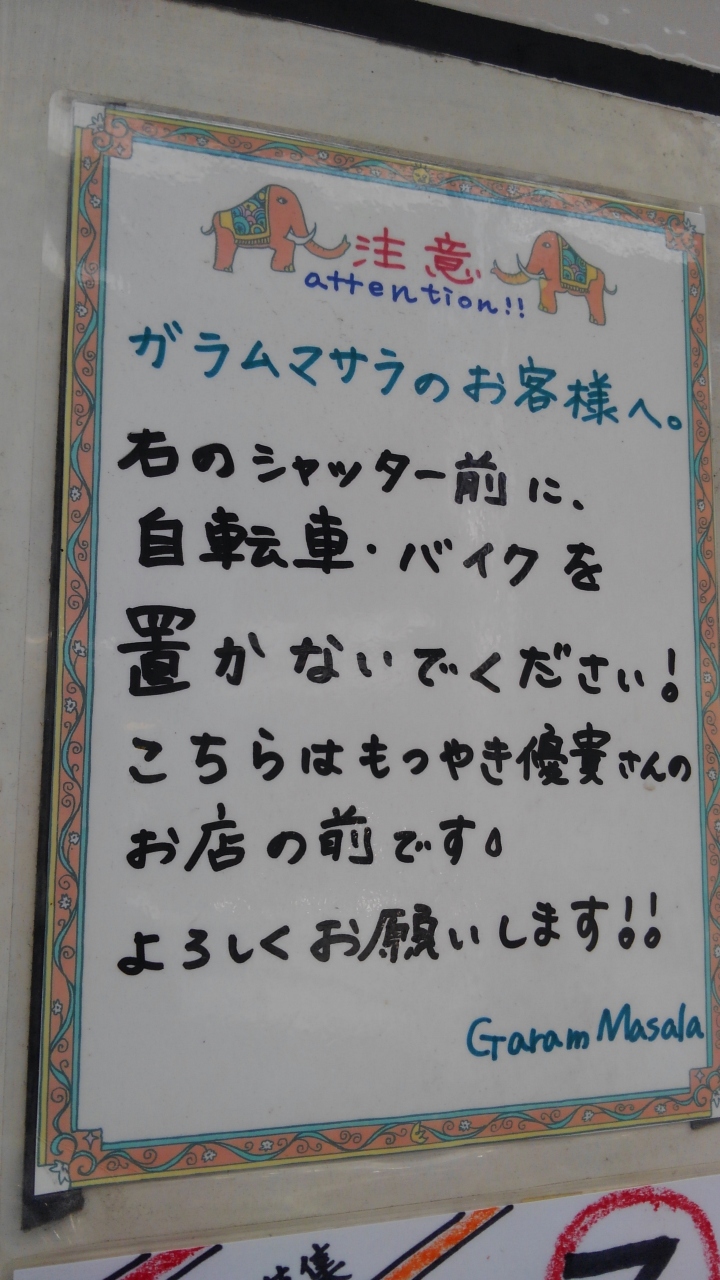 注意
attention!!
ガラムマサラのお客様へ。
右のシャッター前に、
自転車・バイクを
置かないでください!
こちらはもつやき優貴さんの
お店の前です。
よろしくお願いします!!
Garam Masala